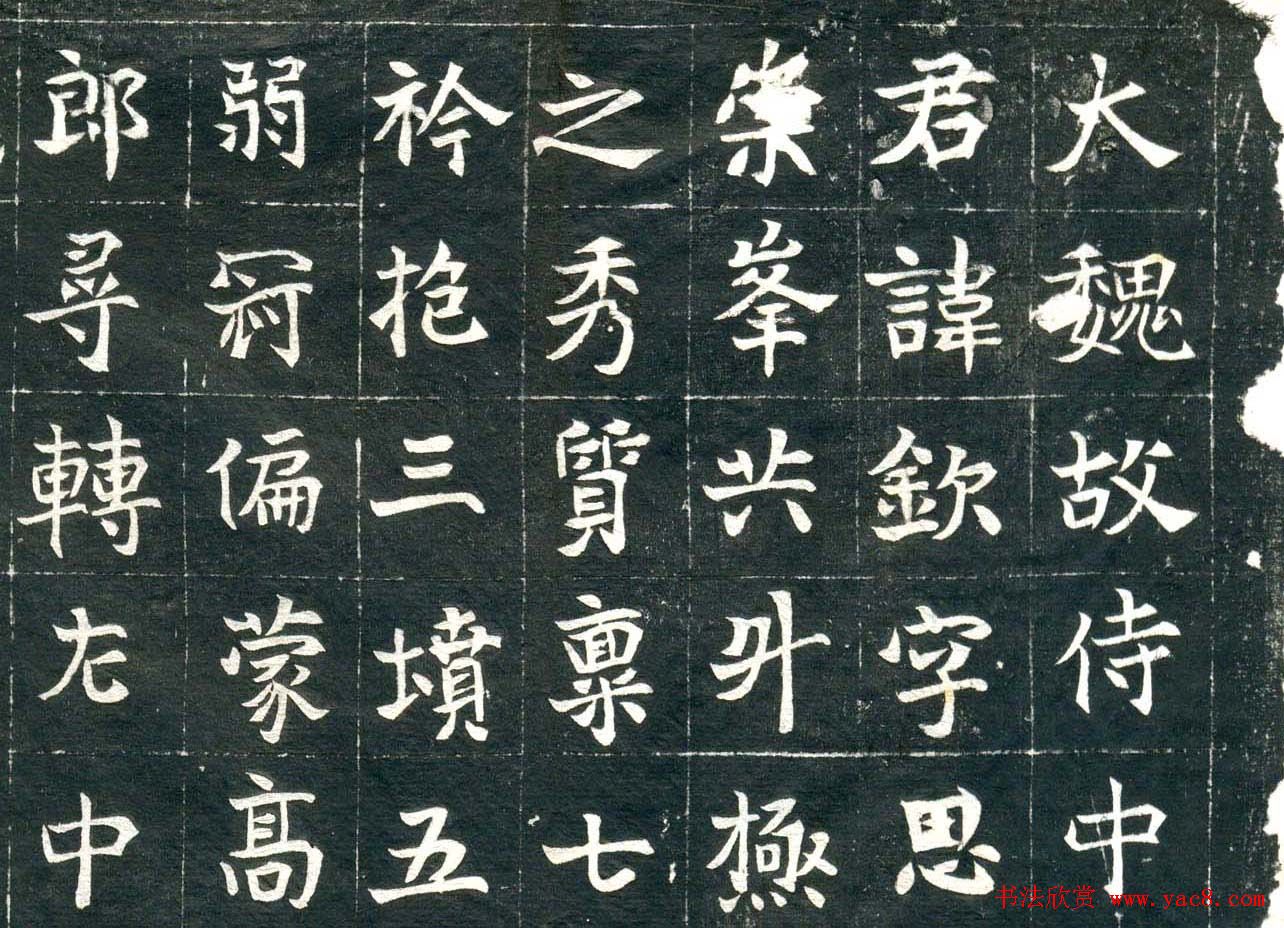 大魏故侍中
君諱欽字思
崇峯共升極
之秀質稟七
衿抱三墳五
弱冠偏蒙高
郎尋轉左中
书法欣赏 www.yac8.com